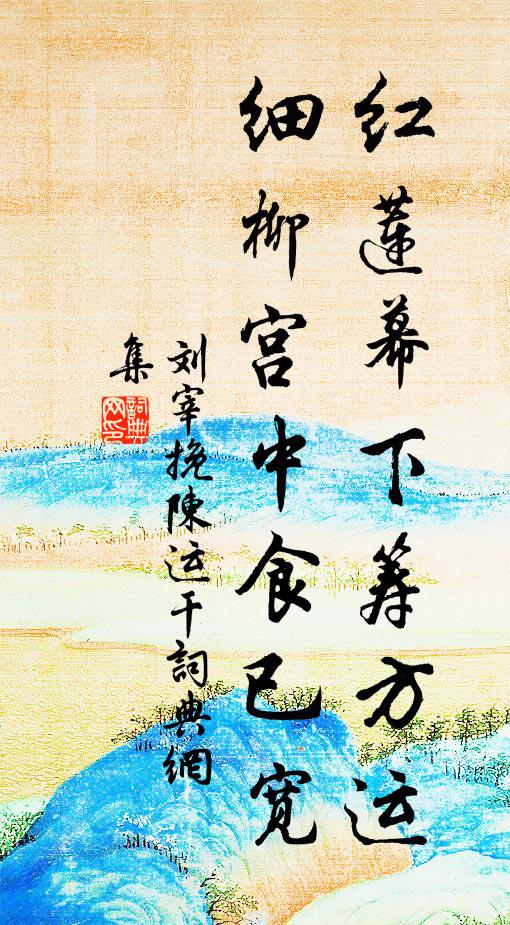 红莲幕下筹方运
细柳宫中食已宽
刘宰挽陳运干詞典網
集
詞典
网印